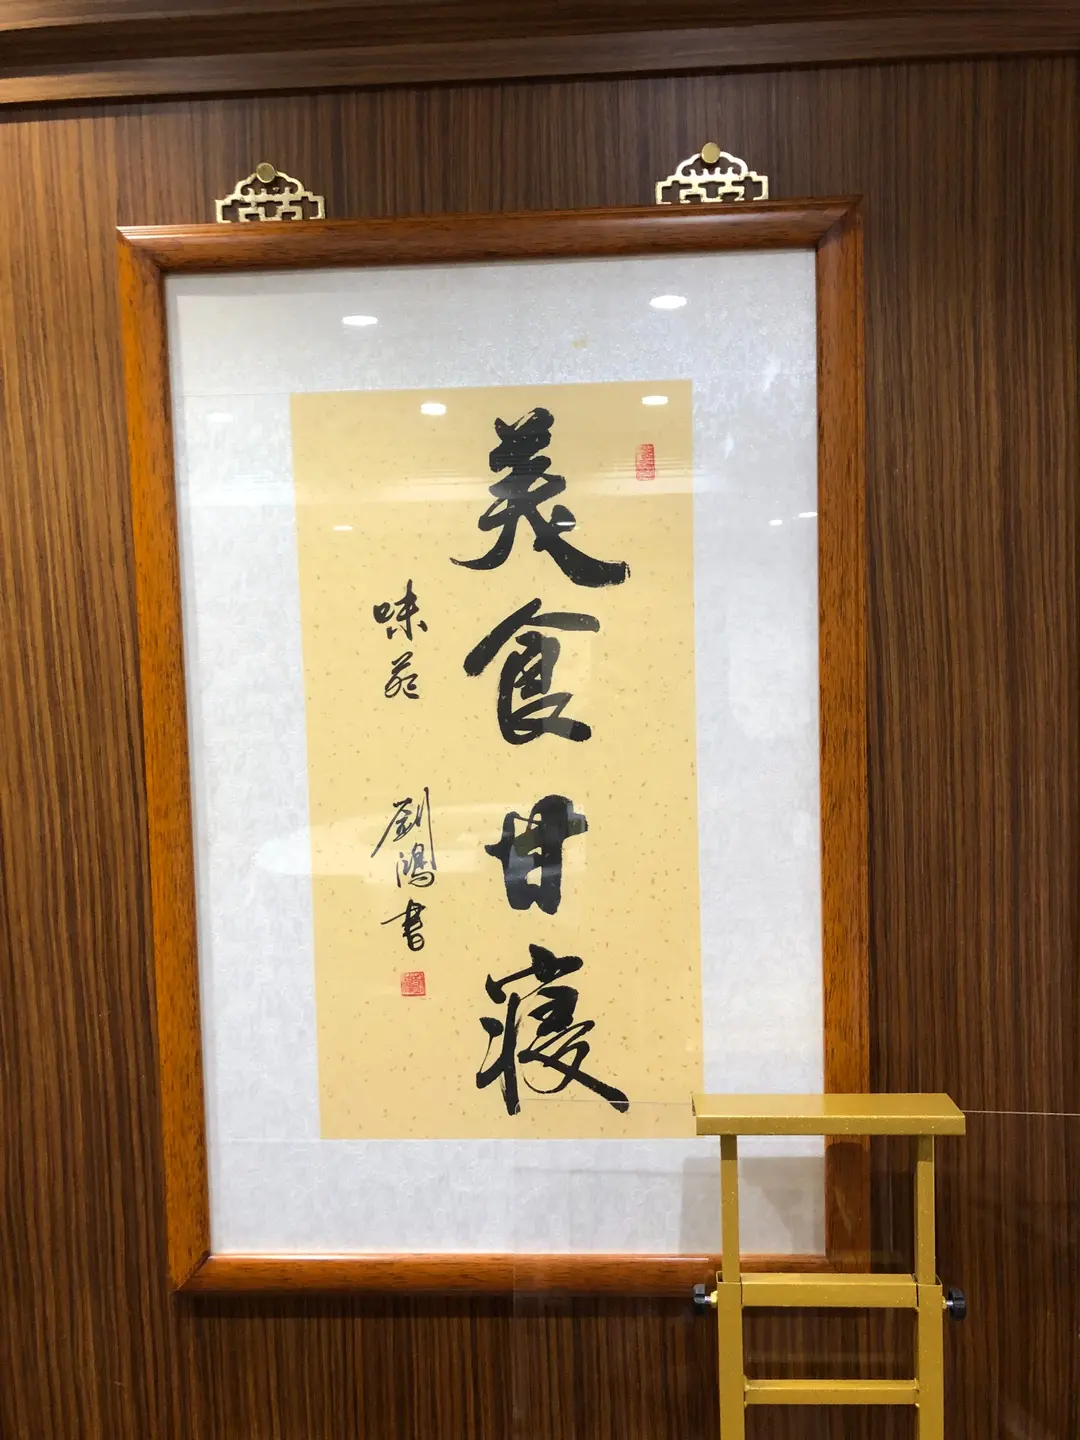 美食甘寝
味苑
劉鴻書